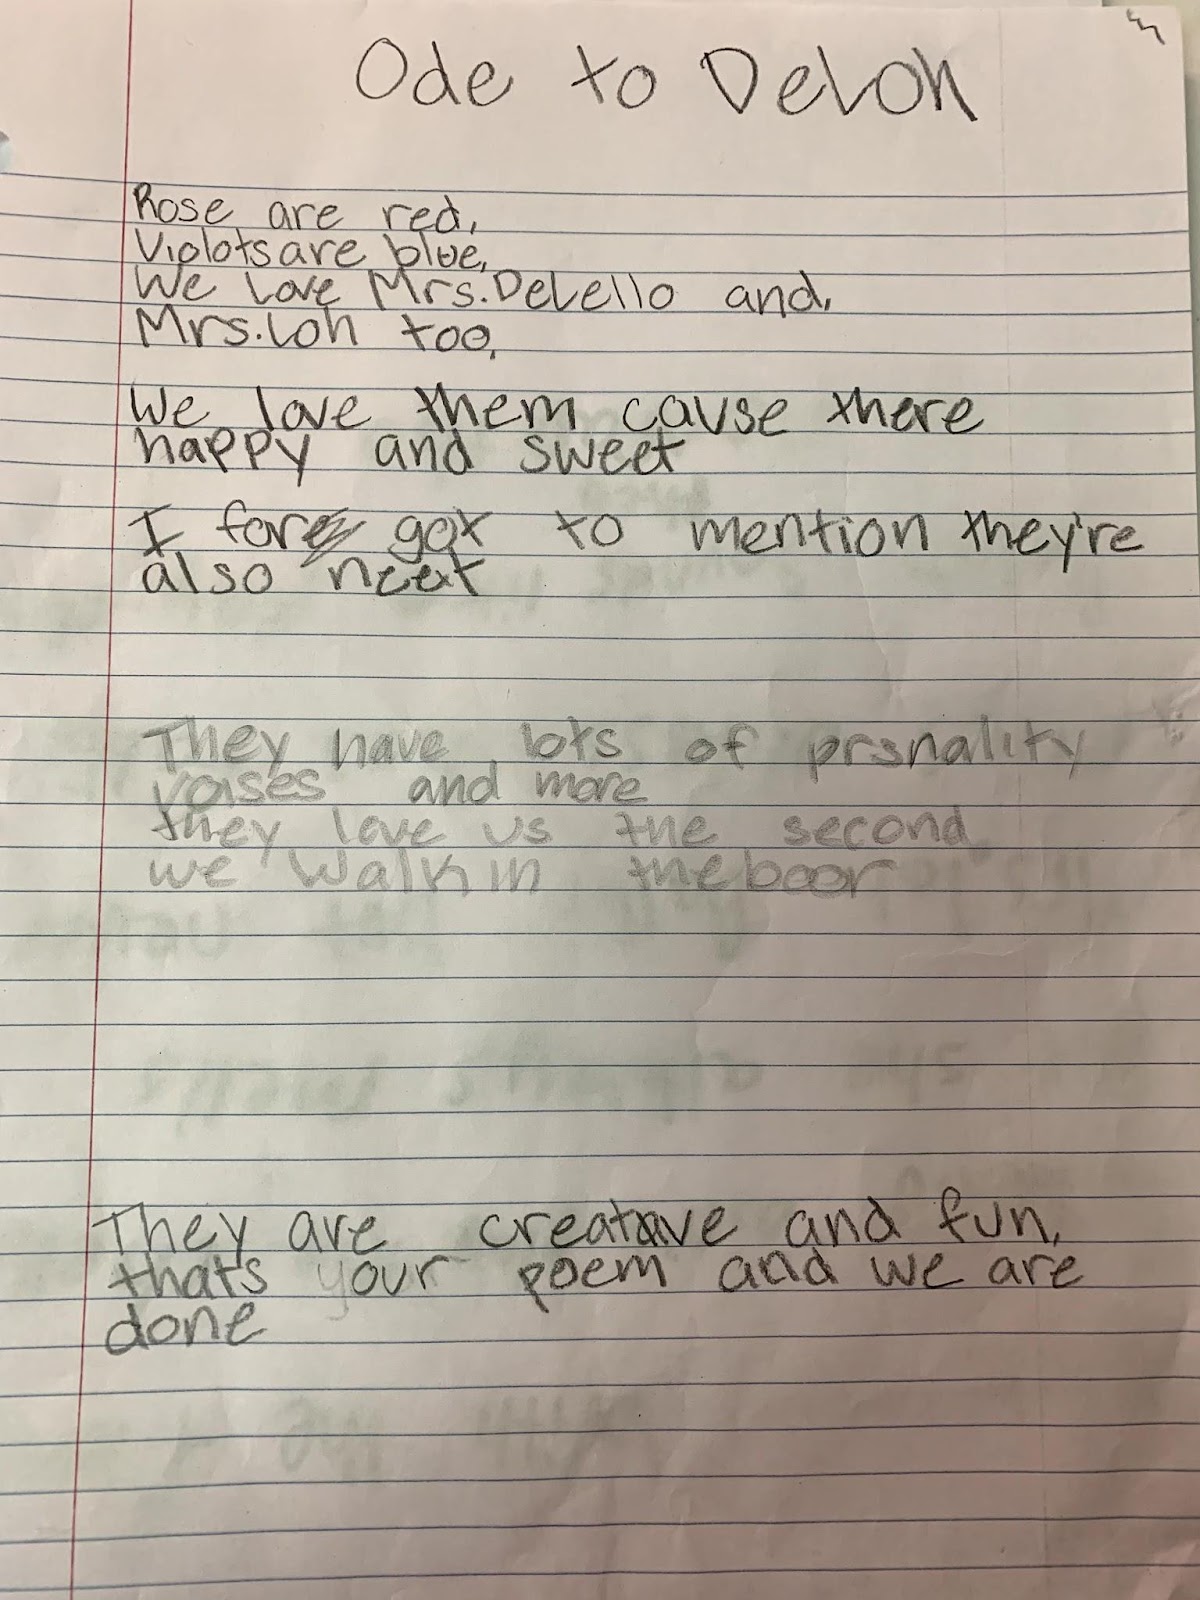 Ode to DeLoh
Rose are red,
Violots are blue,
We Love Mrs. DeLello and,
Mrs. Loh too,
We love them cause there
happy and sweet
I for got to mention they're
also neat
They have lots of prsnality
voises and more
they love us the second
we walk in the boor
They are creatave and fun,
thats your poem and we are
done